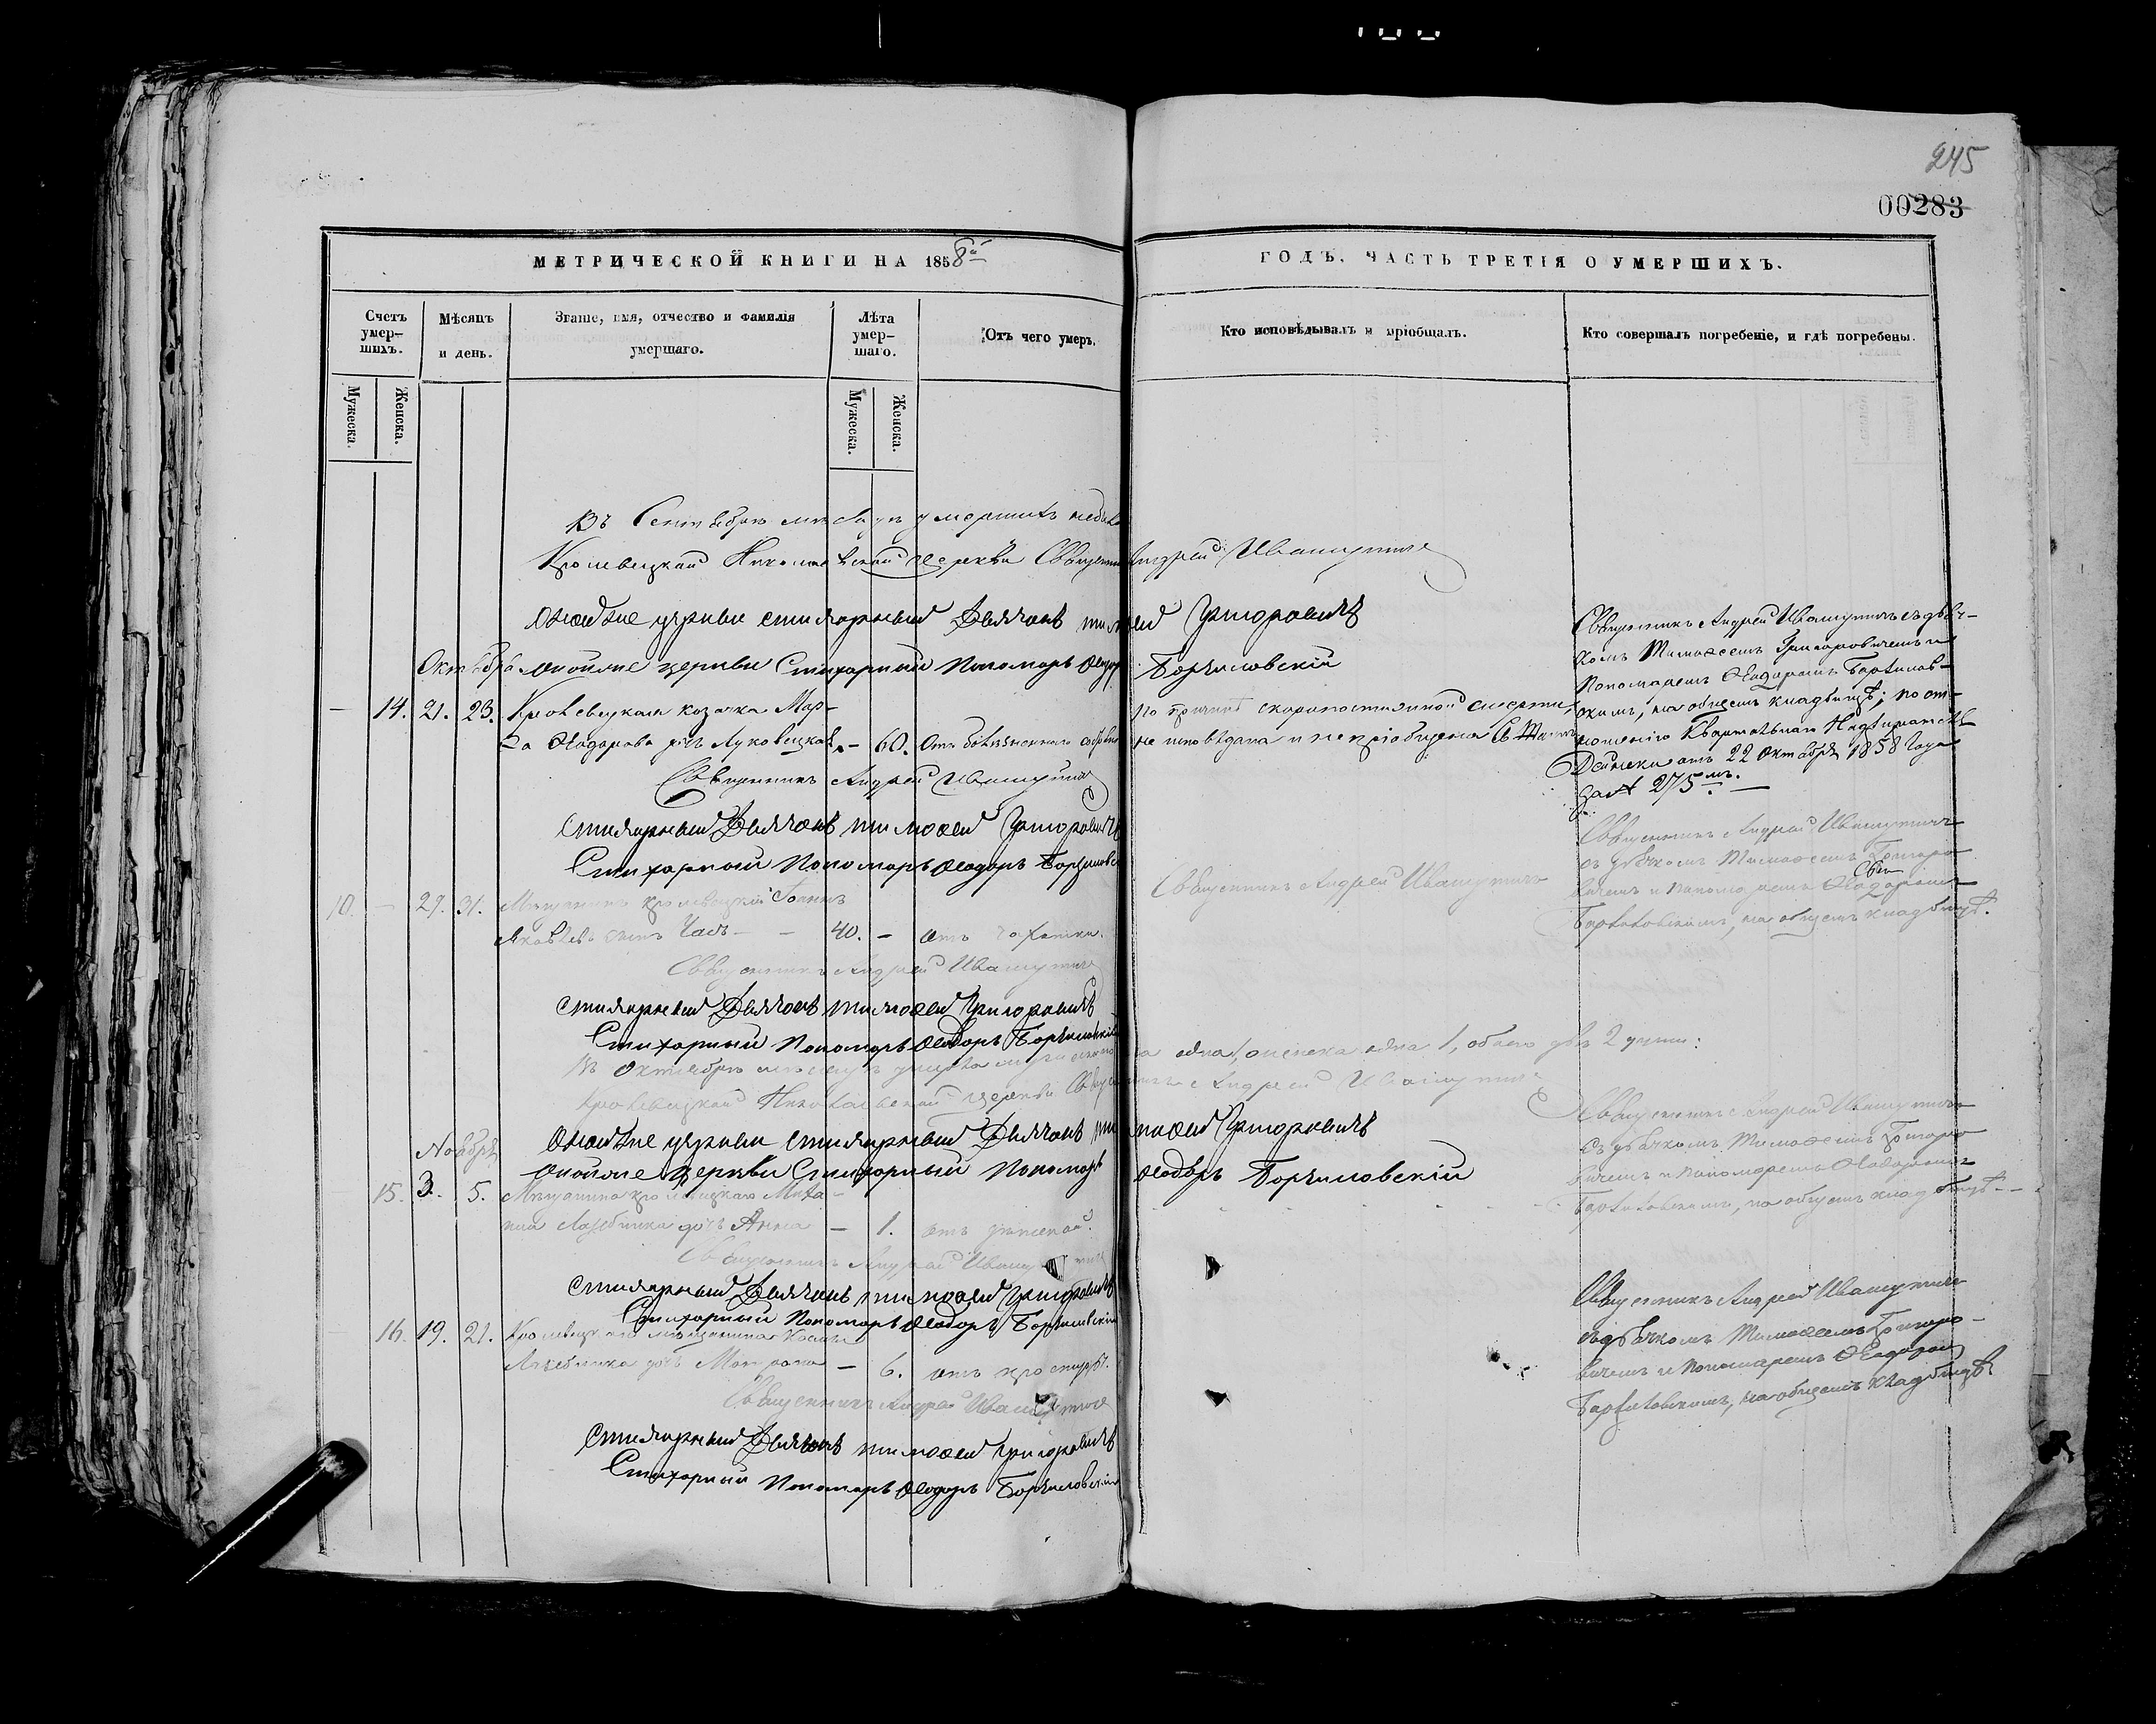 245
00283
МЕТРИЧЕСКОЙ КНИГИ НА 1858й
ГОДЪ. ЧАСТЬ ТРЕТІЯ О УМЕРШИХЪ.
Счетъ умер-шихъ.
Мѣсяцъ и день.
Званіе, имя, отчество и фамилія умершаго.
Лѣта умер-шаго.
Отъ чего умеръ.
Кто исповѣдывалъ и пріобщалъ.
Кто совершалъ погребеніе, и гдѣ погребены.
Мужеска.
Женска.
Мужеска.
Женска.
Въ Сентябрѣ мѣсяцѣ умершихъ небыло
Кролевецкой Николаевской церкви Священникъ Андрей Ивашутичь
Оной же церкви стихарный Дьячокъ Тимоѳей Григоровичъ
Октябрь
Оной же церкви Стихарный Пономарь Ѳеодоръ Борзиловскій
— 14. 21. 23. Кролевецкая козачка Мар-
ѳа Ѳеодорова дочь Луковицкая — 60. Отъ болѣзненнаго
По причинѣ скоропостижной смерти,
не исповѣдана и не пріобщена Св. Таинъ
Священникъ Андрей Ивашутичъ съ дьяч-
комъ Тимоѳеемъ Григоровичемъ и
Пономаремъ Ѳеодоромъ Борзилов-
скимъ, на общемъ кладбищѣ; по от-
ношенію Квартальнаго Надзирателя
Дейнеки отъ 22 октября 1858 года
за № 275мъ. —
Священникъ Андрей Ивашутичь
Стихарный Дьячокъ Тимоѳей Григоровичъ
Стихарный Пономарь Ѳеодоръ Борзиловскій
10. — 29. 31. Мѣщанинъ кролевецкій Іоаннъ
Яковлевъ сынъ Чадъ — — 40. — Отъ чахотки.
Священникъ Андрей Ивашутичъ
Священникъ Андрей Ивашутичъ
съ дьячкомъ Тимоѳеемъ Григоро-
вичемъ и пономаремъ Ѳеодоромъ
Борзиловскимъ, на общемъ кладбищѣ.
Священникъ Андрей Ивашутичь
Стихарный Дьячокъ Тимоѳей Григоровичъ
Стихарный Пономарь Ѳеодоръ Борзиловскій
Въ Октябрѣ мѣсяцѣ умерло мужеска пола одна 1, женска одна 1, обоего двѣ 2 души:
Кролевецкой Николаевской церкви Священникъ Андрей Ивашутичь
Оной же церкви стихарный Дьячокъ Тимоѳей Григоровичъ
Ноябрь
Оной же церкви Стихарный Пономарь Ѳеодоръ Борзиловскій
15. 3. 5. Мѣщанина кролевецкаго Миха-
ила Лазебника дочь Анна — 1. отъ
Священникъ Андрей Ивашутичъ
съ дьячкомъ Тимоѳеемъ Григоро-
вичемъ и пономаремъ Ѳеодоромъ
Борзиловскимъ, на общемъ кладбищѣ.
Священникъ Андрей Ивашутичь
Стихарный Дьячокъ Тимоѳей Григоровичъ
Стихарный Пономарь Ѳеодоръ Борзиловскій
16. 19. 21. Кролевецкаго мѣщанина
дочь Матрона — 6. отъ простуды.
Священникъ Андрей Ивашутичь
съ дьячкомъ Тимоѳеемъ Григоро-
вичемъ и пономаремъ Ѳеодоромъ
Борзиловскимъ, на общемъ кладбищѣ
Священникъ Андрей Ивашутичь
Стихарный Дьячокъ Тимоѳей Григоровичъ
Стихарный Пономарь Ѳеодоръ Борзиловскій